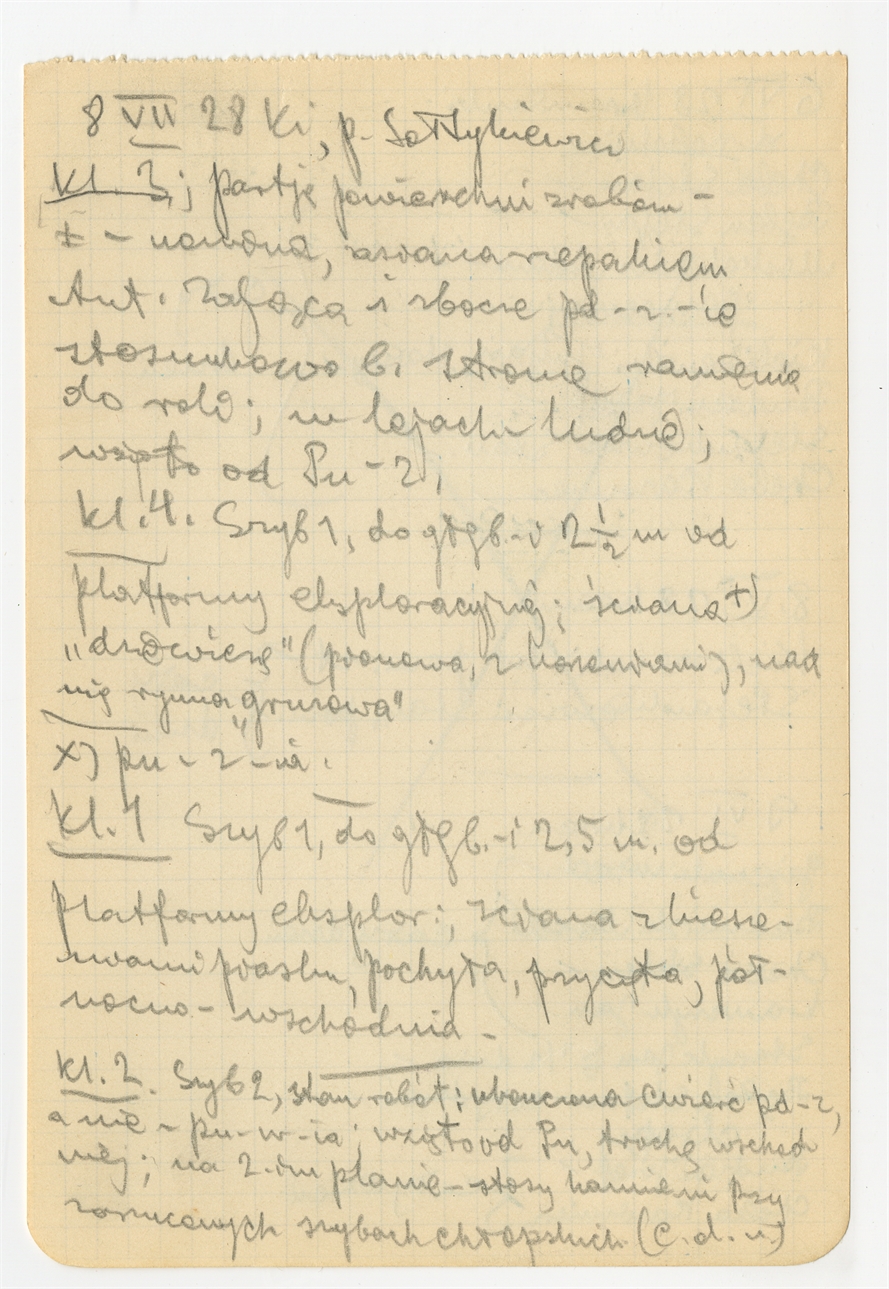 8 VII 28 Ki, p. Sołtykiewicz
Kl. 3; partje powierzchni zrabow-
± - nowana, zasiana rzepakiem
Ant. Zafozca i zbocze pd-z.-ie
stosunkowo b. strome ramienie
do roli; w lejach ludzie;
wzięto od Pn-Z;
Kl. 4. Szyb 1, do głgb.-i 2 1/2 m od
platformy eksploracyjnej; ściana +)
„dziewicza" (pionowa, z korzeniami), nad
nią rynna „gruzowa"
x) pn-z-ia.
Kl. 1 Szyb 1, do głgb.-i 2,5 m. od
platformy eksplor.; ściana z kiesze-
niami piasku, pochyła, przycięta, pół-
nocno-wschodnia -
Kl. 2. Szyb 2, stan robót: ukończona ćwierć pd-z,
a nie - pn-w-ia; wzięto od Pn, trochę wschod
niej; na 2-im planie - stosy kamieni przy
zarzuconych szybach chłopskich (c.d.n)